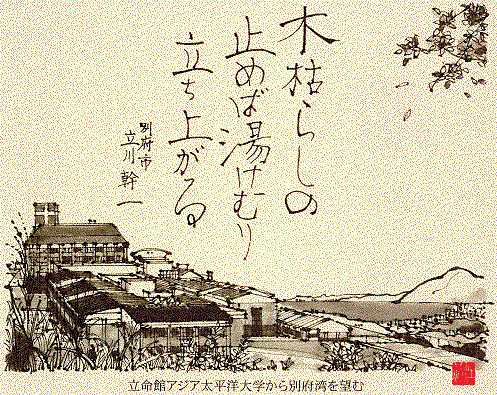 木枯らしの
止めば湯けむり
立ち上がる
別府市
立川 幹一
立命館アジア太平洋大学から別府湾を望む